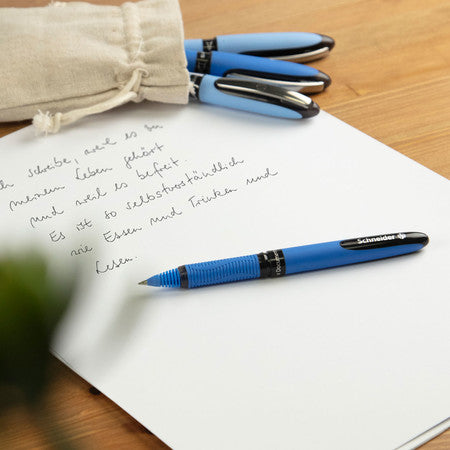 ich schreibe, weil es zu
meinem Leben gehört
und weil es befreit.
Es ist so selbstverständlich
wie Essen und Trinken und
Lesen.
Schneider